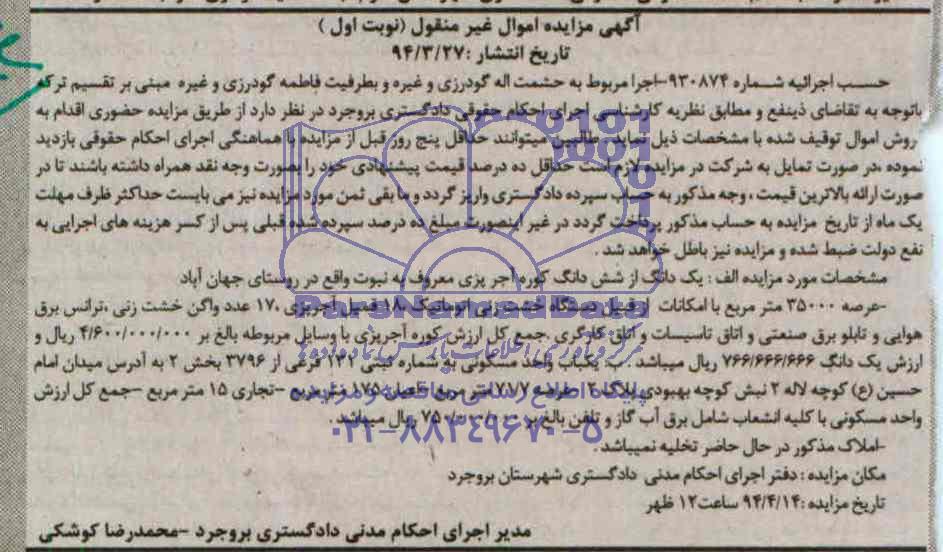 آگهی مزایده اموال غیر منقول (نوبت اول )
تاریخ انتشار :۹۴/۳/۲۷
حسب اجرائیه شماره ۹۳۰۸۷۴-اجرا مربوط به حشمت اله گودرزی و غیره و بطرفیت فاطمه گودرزی و غیره مبنی بر تقسیم ترکه
باتوجه به تقاضای ذینفع و مطابق نظریه کارشناسی اجرای احکام حقوقی دادگستری بروجرد در نظر دارد از طریق مزایده حضوری اقدام به
روش اموال توقیف شده با مشخصات ذیل نماید. طالبین میتوانند حداقل پنج روز قبل از مزایده با هماهنگی اجرای احکام حقوقی بازدید
نموده ،در صورت تمایل به شرکت در مزایده لازم است حداقل ده درصد قیمت پیشنهادی خود را بصورت وجه نقد همراه داشته باشند تا در
صورت ارائه بالاترین قیمت ، وجه مذکور به حساب سپرده دادگستری واریز گردد و مابقی ثمن مورد مزایده نیز می بایست حداکثر ظرف مهلت
یک ماه از تاریخ مزایده به حساب مذکور پرداخت گردد در غیر اینصورت مبلغ ده درصد سپرده شده قبلی پس از کسر هزینه های اجرایی به
نفع دولت ضبط شده و مزایده نیز باطل خواهد شد .
مشخصات مورد مزایده الف : یک دانگ از شش دانگ کوره آجر پزی معروف به نبوت واقع در روستای جهان آباد
-عرصه ۳۵۰۰۰ متر مربع با امکانات از قبیل دستگاه خشت زنی اتوماتیک ۱۸۰ قمیل آجرپزی ،۱۷۰ عدد واگن خشت زنی ،ترانس برق
هوایی و تابلو برق صنعتی و اتاق تاسیسات و اتاق کارگری .جمع کل ارزش کوره آجرپزی با وسایل مربوطه بالغ بر ۴/۶۰۰/۰۰۰/۰۰۰ ریال و
ارزش یک دانگ ۷۶۶/۶۶۶/۶۶۶ ریال میباشد . ب: یکباب واحد مسکونی به شماره ثبتی ۱۴۱ فرعی از ۳۷۹۶ بخش ۲ به آدرس میدان امام
حسین (ع) کوچه لاله ۲ نبش کوچه بهبودی پلاک ۲ عرصه ۷۱/۷ متر مربع اعیان ۱۷۵ متر مربع -تجاری ۱۵ متر مربع -جمع کل ارزش
واحد مسکونی با کلیه انشعاب شامل برق آب گاز و تلفن بالغ بر ۷۵۰/۰۰۰/۰۰۰ ریال میباشد .
-املاک مذکور در حال حاضر تخلیه نمیباشد .
مکان مزایده : دفتر اجرای احکام مدنی دادگستری شهرستان بروجرد
تاریخ مزایده :۹۴/۴/۱۴ ساعت۱۲ ظهر
مدیر اجرای احکام مدنی دادگستری بروجرد -محمدرضا کوشکی
ParsNamadData
پایگاه اطلاع رسانی مناقصه و مزایده
۰۲۱-۸۸۳۴۹۶۷۰-۵